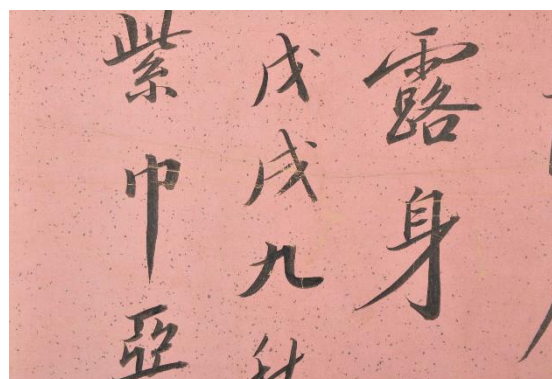 露身
戊戌九秋
紫巾亞